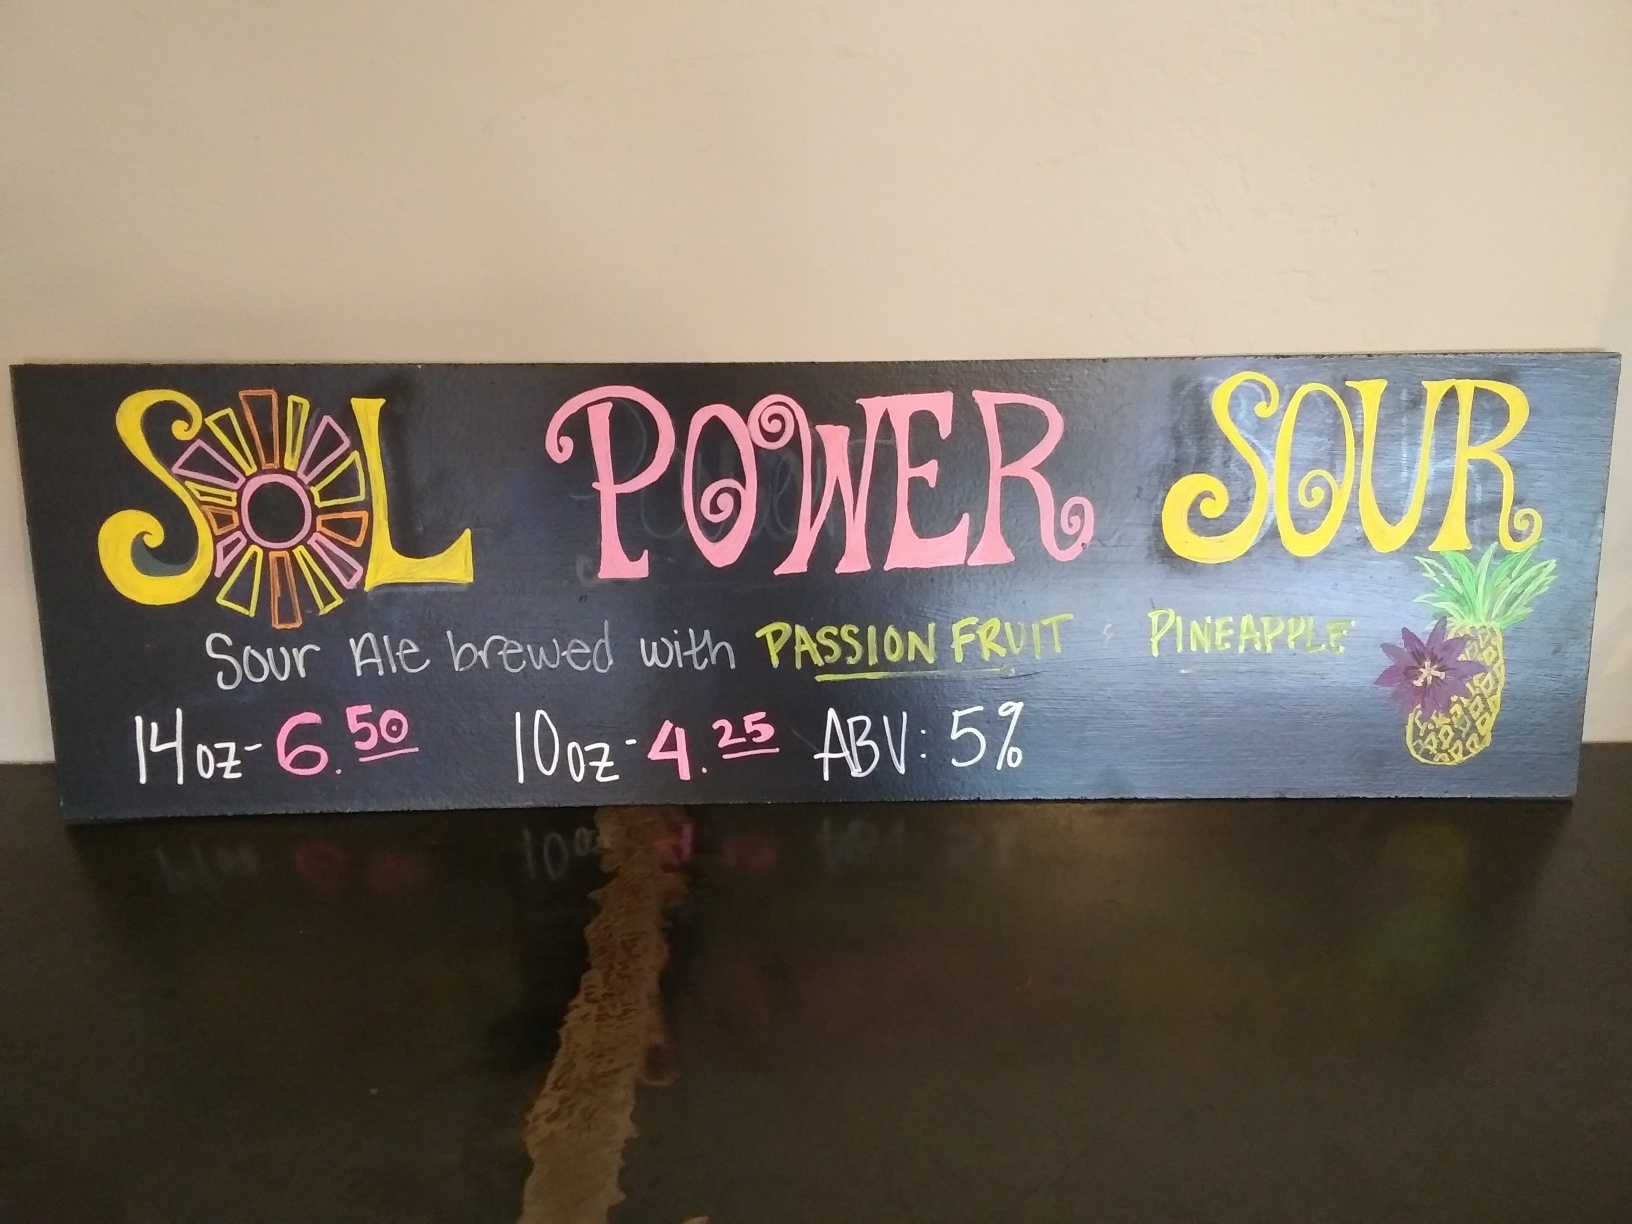 SOL POWER SOUR
Sour Ale brewed with PASSION FRUIT & PINEAPPLE
14oz- 6.50 10oz- 4.25 ABV: 5%